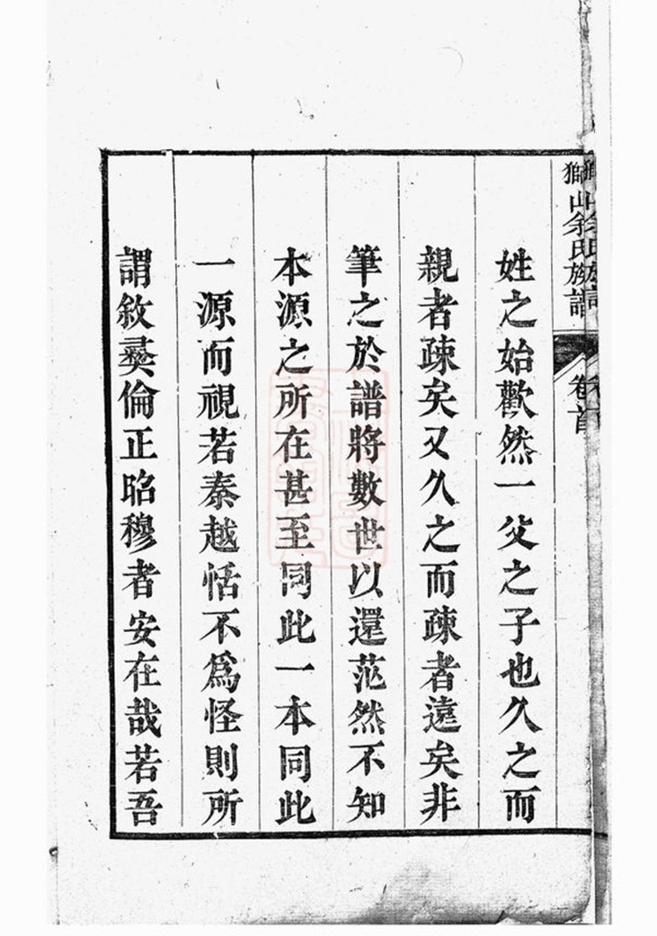 獅山余氏族譜 卷首
姓之始歡然一父之子也久之而
親者疎矣又久之而疎者遠矣非
筆之於譜將數世以還茫然不知
本源之所在甚至同此一本同此
一源而視若秦越恬不為怪則所
謂敘彝倫正昭穆者安在哉若吾